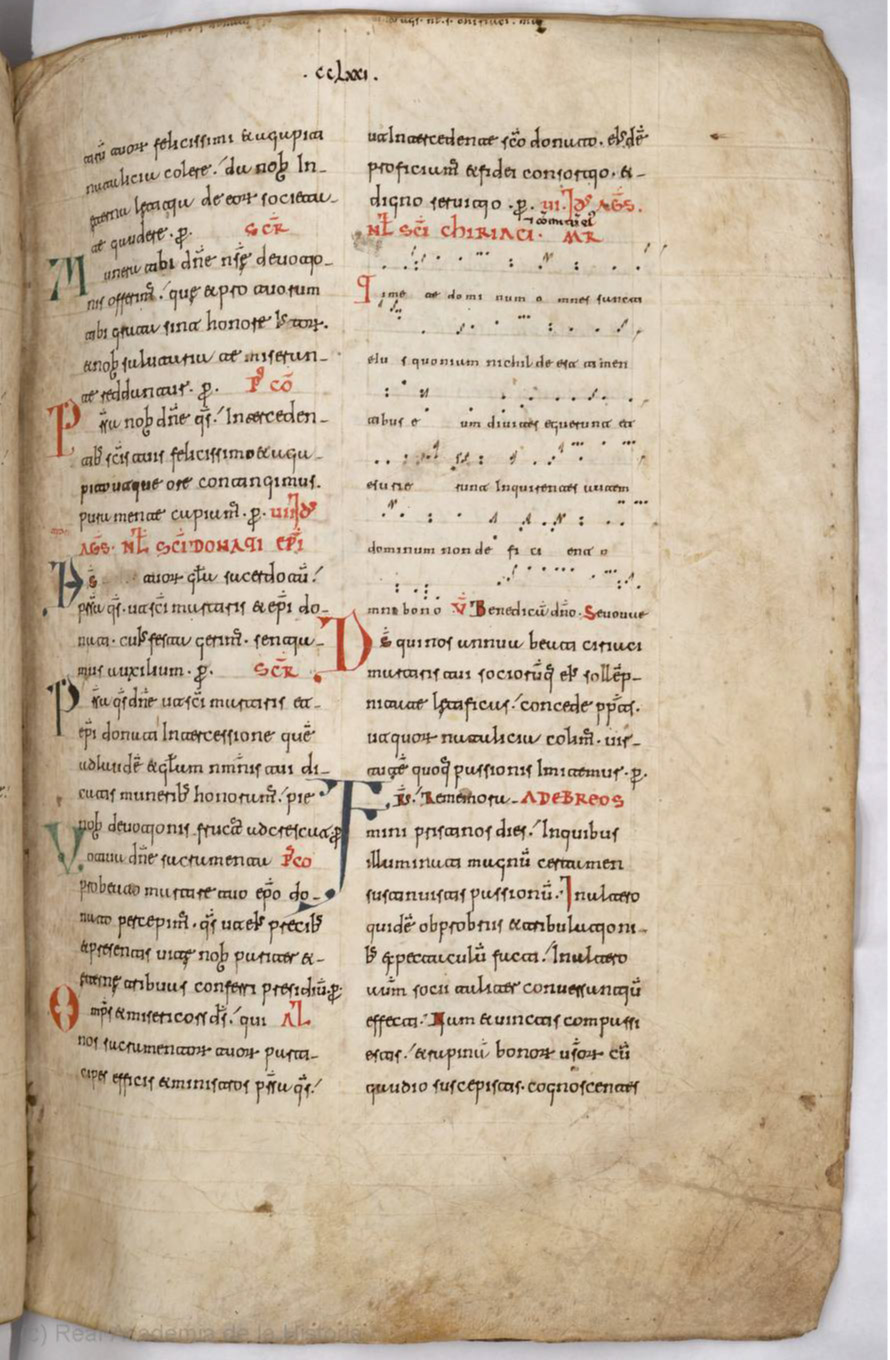 . cclxxi .
atū tuoꝝ felicissimi & agapiti
natalicia colere. da nob̄ In-
eterna letitia de eoꝝ societa-
te gaudere. p̄. SCR̄
Munera tibi dñe nr̄ę deuotio-
nis offerim̄. quę & pro tuorum
tibi grata sint honore
& nob̄ salutaria te miseran-
te reddantur. p̄. P̄ CŌ
Prs̄ta nob̄ dñe q̄s. Interceden-
tib̄ sc̄is tuis felicissimo & aga-
pito ut que ore contingimus.
pura mente capiam̄. p̄. UII ID̄
AGS̄. NL̄ SC̄I DONATI EP̄I
Ds̄ tuoꝝ gl̄a sacerdotū.
pr̄sta q̄s. ut sc̄i martiris & ep̄i do-
nati. cuī festa gerim̄. sentia-
mus auxilium. p̄. SCR̄
Pr̄sta q̄s dñe ut sc̄i martiris et-
ep̄i donati Intercessione quē
ad laudē & gl̄am nm̄nis tui di-
catis munerib̄ honoram̄. pie
nob̄ deuotionis fructū adcrescat. p̄
Votiua dñe sacramenta P̄ CO
pro beato martire tuo ep̄o do-
nato percepim̄. q̄s ut eī precib̄
& presentis uitę nob̄ pariter & -
eternę tribuas conferri presidiū. p̄
Omp̄s & misericors ds̄. qui AL̄
nos sacramentoꝝ tuoꝝ parti-
cipes efficis & ministros pr̄sta q̄s.
ut Intercedente sc̄o donato. eīsdē
proficiam̄ & fidei consortio. & -
digno seruitio. p̄. UI. ID̄ AGS̄.
NL̄ SC̄I CHIRIACI. MR̄
Timete domi num o mnes sancti
eius quoniam nichil de est timen
tibus e um diuites eguerunt et
esurie runt Inquirentes autem
dominum non de fi ci ent o
mni bono V̄ Benedicā dño. Seuouae
Ds̄ qui nos annua beati ciriaci
martiris tui sociorūq̄ eī sollēp-
nitate lętificas. concede pp̄tis.
ut quoꝝ natalicia colim̄. uir-
tutē quoq̄ passionis Imitemur. p̄.
Fr̄s. Rememora- AD EBREOS
mini pristinos dies. In quibus
illuminati magnū certamen
sustinuistis passionū. In altero
quidē obprobriis & tribulationi-
b̄ spectaculū facti. In altero
autm̄ socii taliter conuersantiū
effecti. Nam & uinctis compassi
estis. & rapinā bonoꝝ ur̄oꝝ cū
gaudio suscepistis. cognoscentes